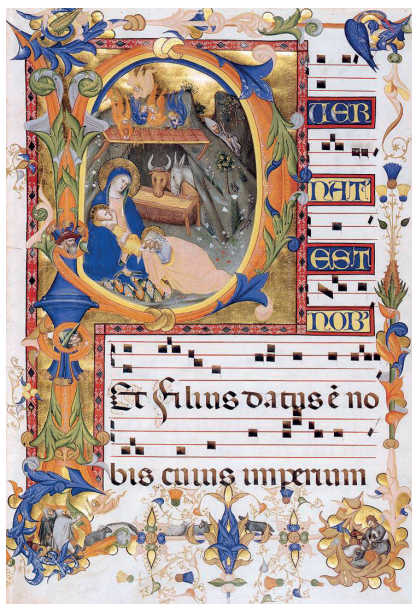 PUER
NAT
EST
NOB'
Et filius datus ē no
bis cuius imperium